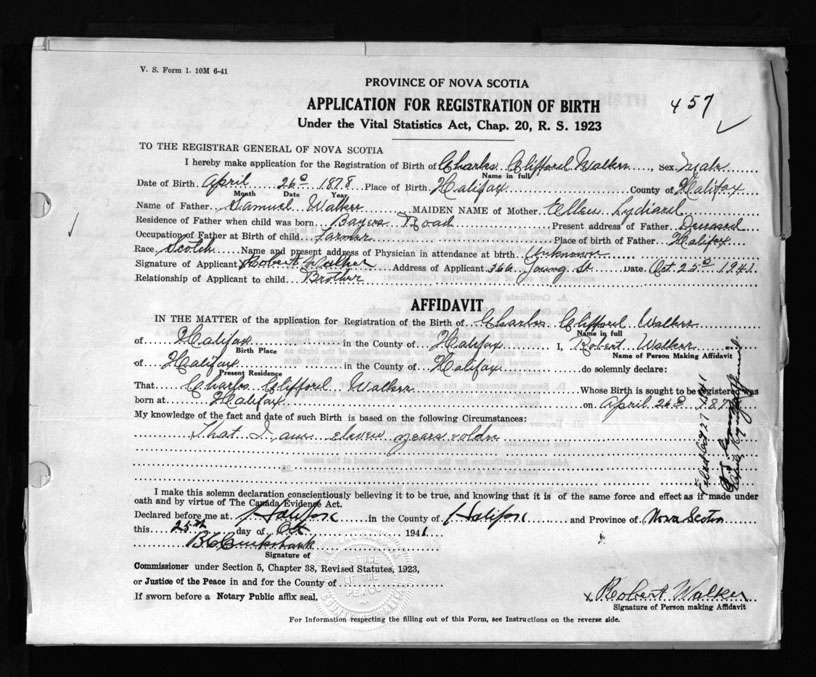 V. S. Form 1. 10M 6-41
PROVINCE OF NOVA SCOTIA
APPLICATION FOR REGISTRATION OF BIRTH
457
Under the Vital Statistics Act, Chap. 20, R. S. 1923
TO THE REGISTRAR GENERAL OF NOVA SCOTIA
I hereby make application for the Registration of Birth of Charles Clifford Walker, Sex Male
Name in full
Date of Birth April 26 1878 Place of Birth Halifax County of Halifax
Month Date Year
Name of Father Samuel Walker MAIDEN NAME of Mother Ellen Lydiard
Residence of Father when child was born Bayers Road Present address of Father Deceased
Occupation of Father at Birth of child Farmer Place of birth of Father Halifax
Race Scotch Name and present address of Physician in attendance at birth Unknown
Signature of Applicant Robert Walker Address of Applicant 366 Young St. Date Oct 25 1941
Relationship of Applicant to child Brother
AFFIDAVIT
IN THE MATTER of the application for Registration of the Birth of Charles Clifford Walker
Name in full
of Halifax in the County of Halifax I, Robert Walker
Birth Place Name of Person Making Affidavit
of Halifax in the County of Halifax do solemnly declare:
Present Residence
That Charles Clifford Walker Whose Birth is sought to be registered was
born at Halifax on April 26 1878
My knowledge of the fact and date of such Birth is based on the following Circumstances:
That I am eleven years older
I make this solemn declaration conscientiously believing it to be true, and knowing that it is of the same force and effect as if made under
oath and by virtue of The Canada Evidence Act.
Declared before me at Halifax in the County of Halifax and Province of Nova Scotia
this 25th day of Oct 1941
Signature of
Commissioner under Section 5, Chapter 38, Revised Statutes, 1923,
or Justice of the Peace in and for the County of
If sworn before a Notary Public affix seal.
x Robert Walker
Signature of Person making Affidavit
For Information respecting the filling out of this Form, see Instructions on the reverse side.